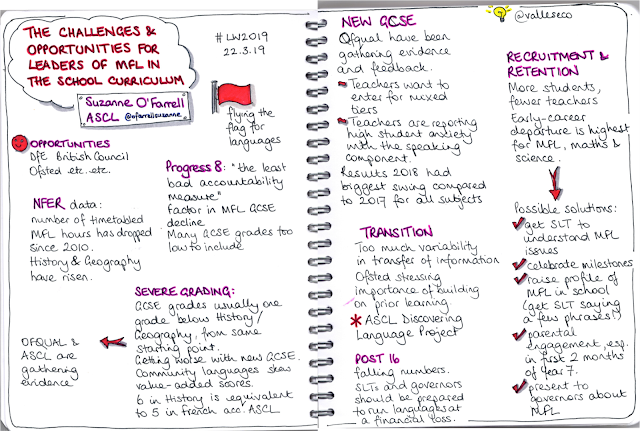 THE CHALLENGES &
OPPORTUNITIES FOR
LEADERS OF MFL IN
THE SCHOOL CURRICULUM
Suzanne O'Farrell
ASCL @ofarrellsuzanne
#LW2019
22.3.19
flying
the
flag for
languages
OPPORTUNITIES
DfE British Council
Ofsted etc. etc.
NFER data:
number of timetabled
MFL hours has dropped
since 2010.
History & Geography
have risen.
Progress 8: "the least
bad accountability
measure"
Factor in MFL GCSE
decline.
Many GCSE grades too
low to include
SEVERE GRADING:
GCSE grades usually one
grade below History/
Geography, from same
starting point.
Getting worse with new GCSE.
Community languages skew
value-added scores.
6 in History is equivalent
to 5 in French acc. ASCL
OFQUAL &
ASCL are
gathering
evidence
NEW GCSE
Ofqual have been
gathering evidence
and feedback.
Teachers want to
enter for mixed
tiers
Teachers are reporting
high student anxiety
with the speaking
component.
Results 2018 had
biggest swing compared
to 2017 for all subjects
TRANSITION
Too much variability
in transfer of information
Ofsted stressing
importance of building
on prior learning.
* ASCL Discovering
Language Project
POST 16
falling numbers.
SLTs and governors
should be prepared
to run languages at
a financial loss.
@vallesco
RECRUITMENT &
RETENTION
More students,
fewer teachers
Early-career
departure is highest
for MFL, maths &
science.
Possible solutions:
get SLT to
understand MFL
issues
celebrate milestones
raise profile of
MFL in school
(get SLT saying
a few phrases!)
parental
engagement, esp.
in first 2 months
of Year 7.
present to
governors about
MFL